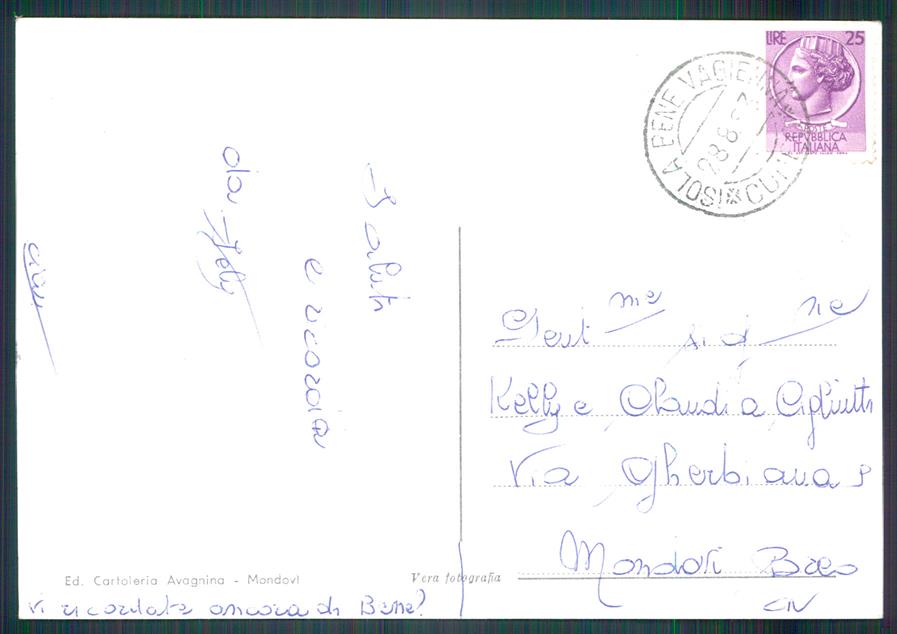 LIRE 25
REPVBBLICA
ITALIANA
ISOLA BENE VAGIENNA
28.8.
Saluti
e ricordi
da
ciao
Gent.me Sig.ne
Kelly e Claudia
Via Gherbiana
Mondovì Breo
CN
Ed. Cartoleria Avagnina - Mondovì
Vera fotografia
vi ricordate ancora di Bene?